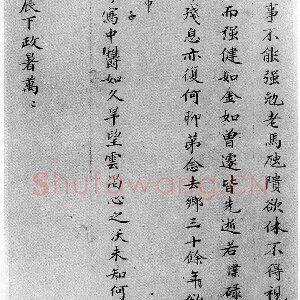 事不能强勉老馬虺隤欲休不得視
而强健如金如曾遽皆先逝若深碌
殘息亦復何聊弟念去鄉三十餘年欲
中
子
寫中欝如久旱望雲渴心之沃未知何
辰下政署萬ミ
Shufawang.CN